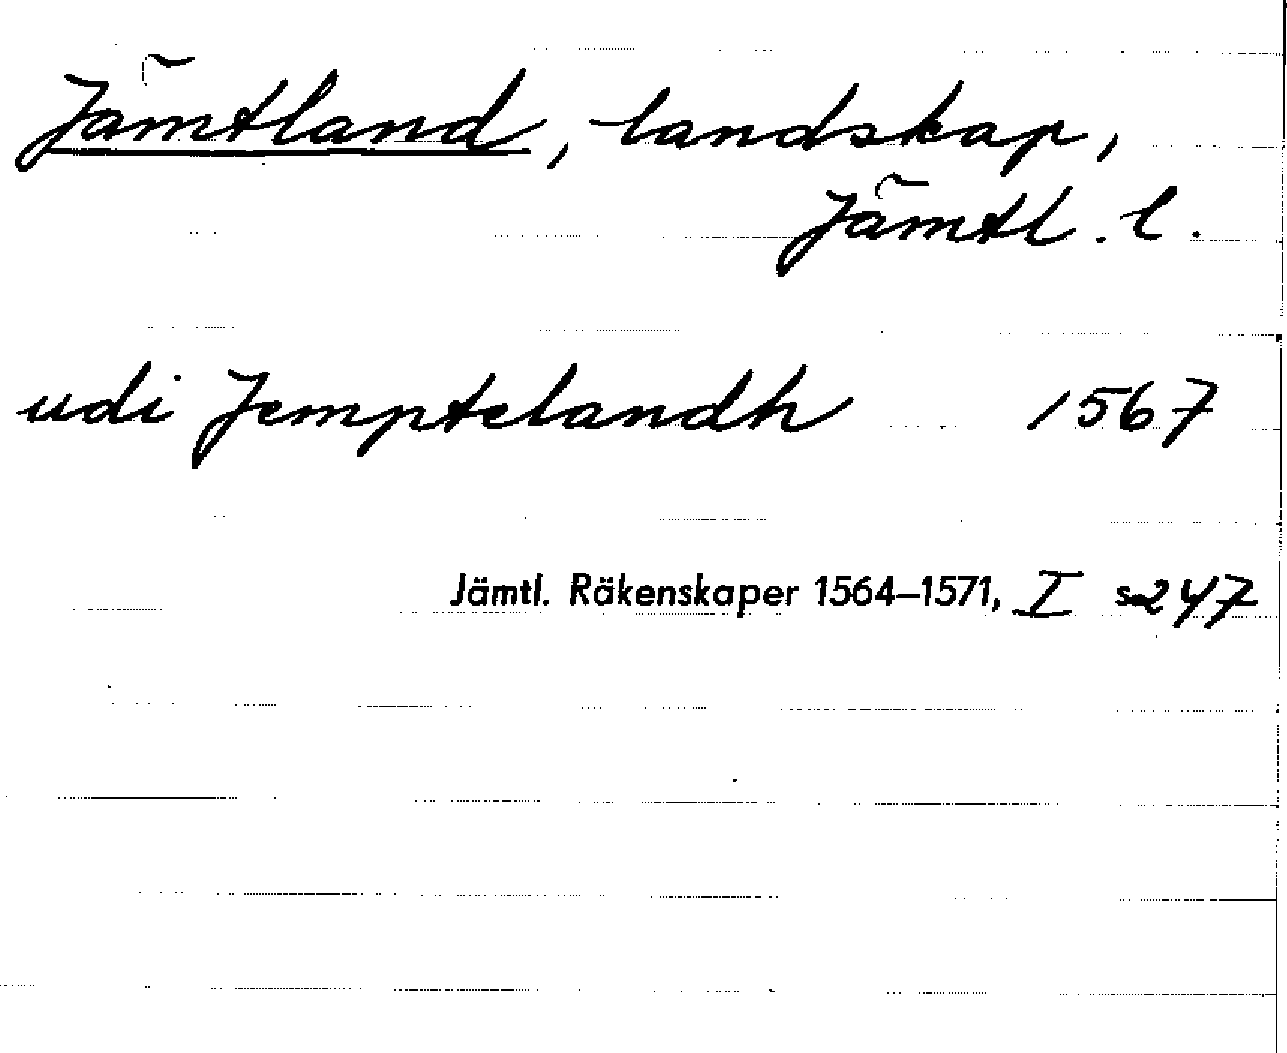 Jämtland, landskap,
Jämtl. l.
udi Jemptelandh 1567
Jämtl. Räkenskaper 1564–1571, I s 247